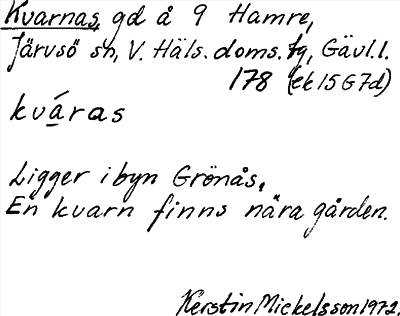 Kvarnas, gd å 9 Hamre,
Järvsö sn, V. Häls. doms. tg, Gävl. l.
178 (ek 15G7d)
kváras
Ligger i byn Grönås,
En kvarn finns nära gården.
Kerstin Mickelsson 1972.